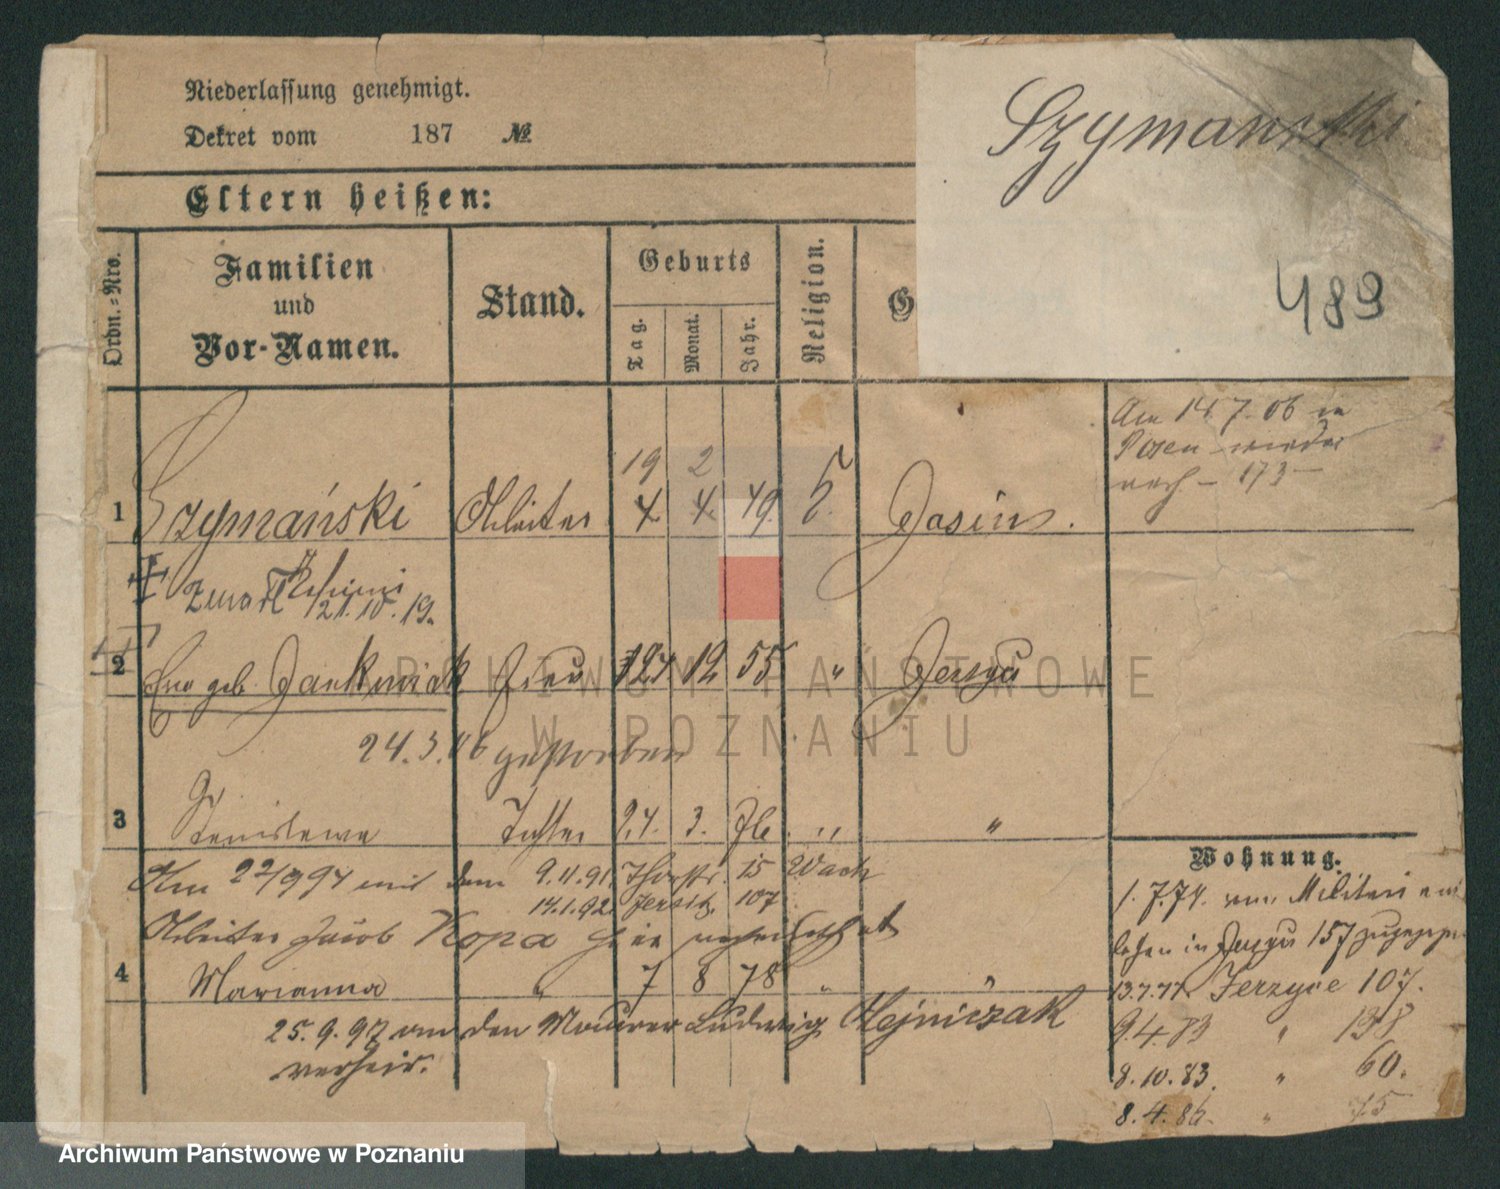 Niederlassung genehmigt.
Dekret vom 187 №
Szymanski
489
Eltern heißen:
Ordn.-Nro.
Familien und Vor-Namen.
Stand.
Geburts
Tag.
Monat.
Jahr.
Religion.
G
Am 14.7.06 in
Posen wieder
nach – 173 –
19 2
1 Szymański Arbeiter 4. 4. 49. Jasin.
21.10.19.
2 Eva geb. Jankowiak Frau 127 12 55 " Jerzyce
24.3.06 gestorben
3 Stanislawa Tochter 24. 3. 76. " "
Am 22/9 94 mit dem 9.11.91. 15 Wach
14.1.92. Jersitz. 107
Arbeiter Jacob Kopa hier verheirathet
4 Marianna " 7 8 78 " "
25.9.97 an den Maurer Ludwig Olejniczak
verheir.
Wohnung.
1.7.74. vom Militair
in 157
13.7.77 Jerzyce 107.
9.4.83 " 138
8.10.83. " 60.
8.4.86. " 75
ARCHIWUM PAŃSTWOWE
W POZNANIU
Archiwum Państwowe w Poznaniu